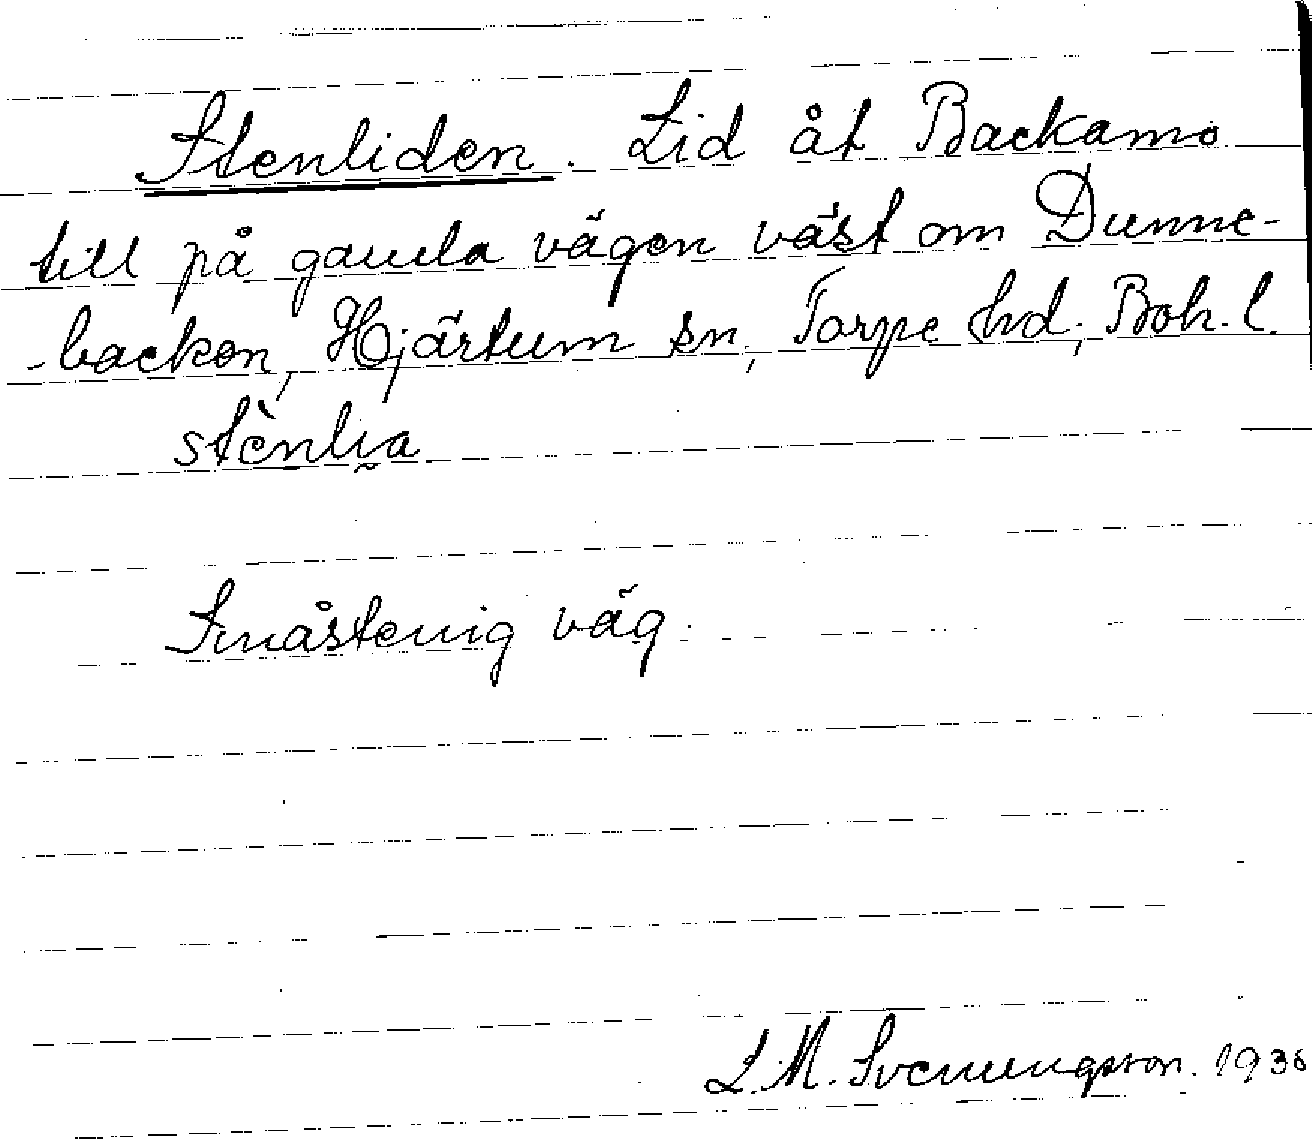 Stenliden. Lid åt Backamo
till på gamla vägen väst om Dunne-
-backen, Hjärtum sn, Torpe hd, Boh. l.
stènlia
Småstenig väg.
L.M. Svenungsson. 1936